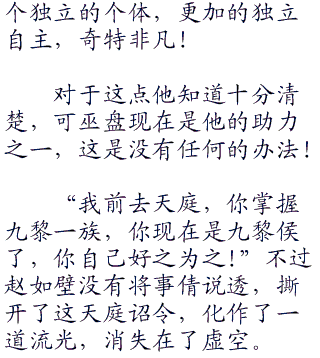 个独立的个体，更加的独立
自主，奇特非凡！
对于这点他知道十分清
楚，可巫盘现在是他的助力
之一，这是没有任何的办法！
“我前去天庭，你掌握
九黎一族，你现在是九黎侯
了，你自己好之为之！”不过
赵如壁没有将事情说透，撕
开了这天庭诏令，化作了一
道流光，消失在了虚空。